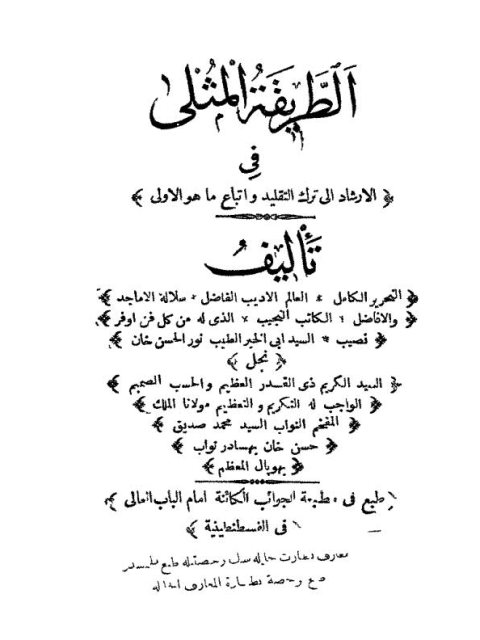 الطَّرِيقَةُ الْمُثْلَى
فِي
﴿ الارشاد الى ترك التقليد واتباع ما هو الاولى ﴾
تَأْلِيفُ
﴿ التحرير الكامل * العالم الاديب الفاضل * سلالة الاماجد ﴾
﴿ والافاضل * الكاتب النجيب * الذى له من كل فن اوفر ﴾
﴿ قصيب * السيد ابى الخير الطيب نور الحسن خان ﴾
﴿ نجل ﴾
﴿ السيد الكريم ذى القدر العظيم والحسب الصميم ﴾
﴿ الواجب له التكريم والتعظيم مولانا الملك ﴾
﴿ المفخم النواب السيد محمد صديق ﴾
﴿ حسن خان بهادر نواب ﴾
﴿ بهوپال المعظم ﴾
﴿ طبع فى مطبعة الجوائب الكائنة امام الباب العالى ﴾
﴿ فى القسطنطينية ﴾
معارف نظارت جليله سنك رخصتيله طبع